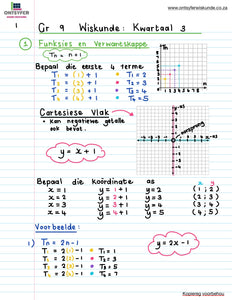 www.ontsyferwiskunde.co.za
ONTSYFER
1
Gr 9 Wiskunde: Kwartaal 3
1 Funksies en Verwantskappe
Tn = n+1
Bepaal die eerste 4 terme
T1 = (1) + 1 T1 = 2
T2 = (2) + 1 T2 = 3
T3 = (3) + 1 T3 = 4
T4 = (4) + 1 T4 = 5
Tn
n
Cartesiese Vlak
* Kan negatiewe getalle
ook bevat.
y = x + 1
oorsprong
Bepaal die koördinate as x y
x = 1 y = 1 + 1 (1 ; 2)
x = 2 y = 2 + 1 (2 ; 3)
x = 3 y = 3 + 1 (3 ; 4)
x = 4 y = 4 + 1 (4 ; 5)
Voorbeelde:
1) Tn = 2n - 1
y = 2x - 1
T1 = 2(1) - 1 T1 = 1
T2 = 2(2) - 1 T2 = 3
T3 = 2(3) - 1 T3 = 5
T4 = 2(4) - 1 T4 = 7
Kopiereg voorbehou